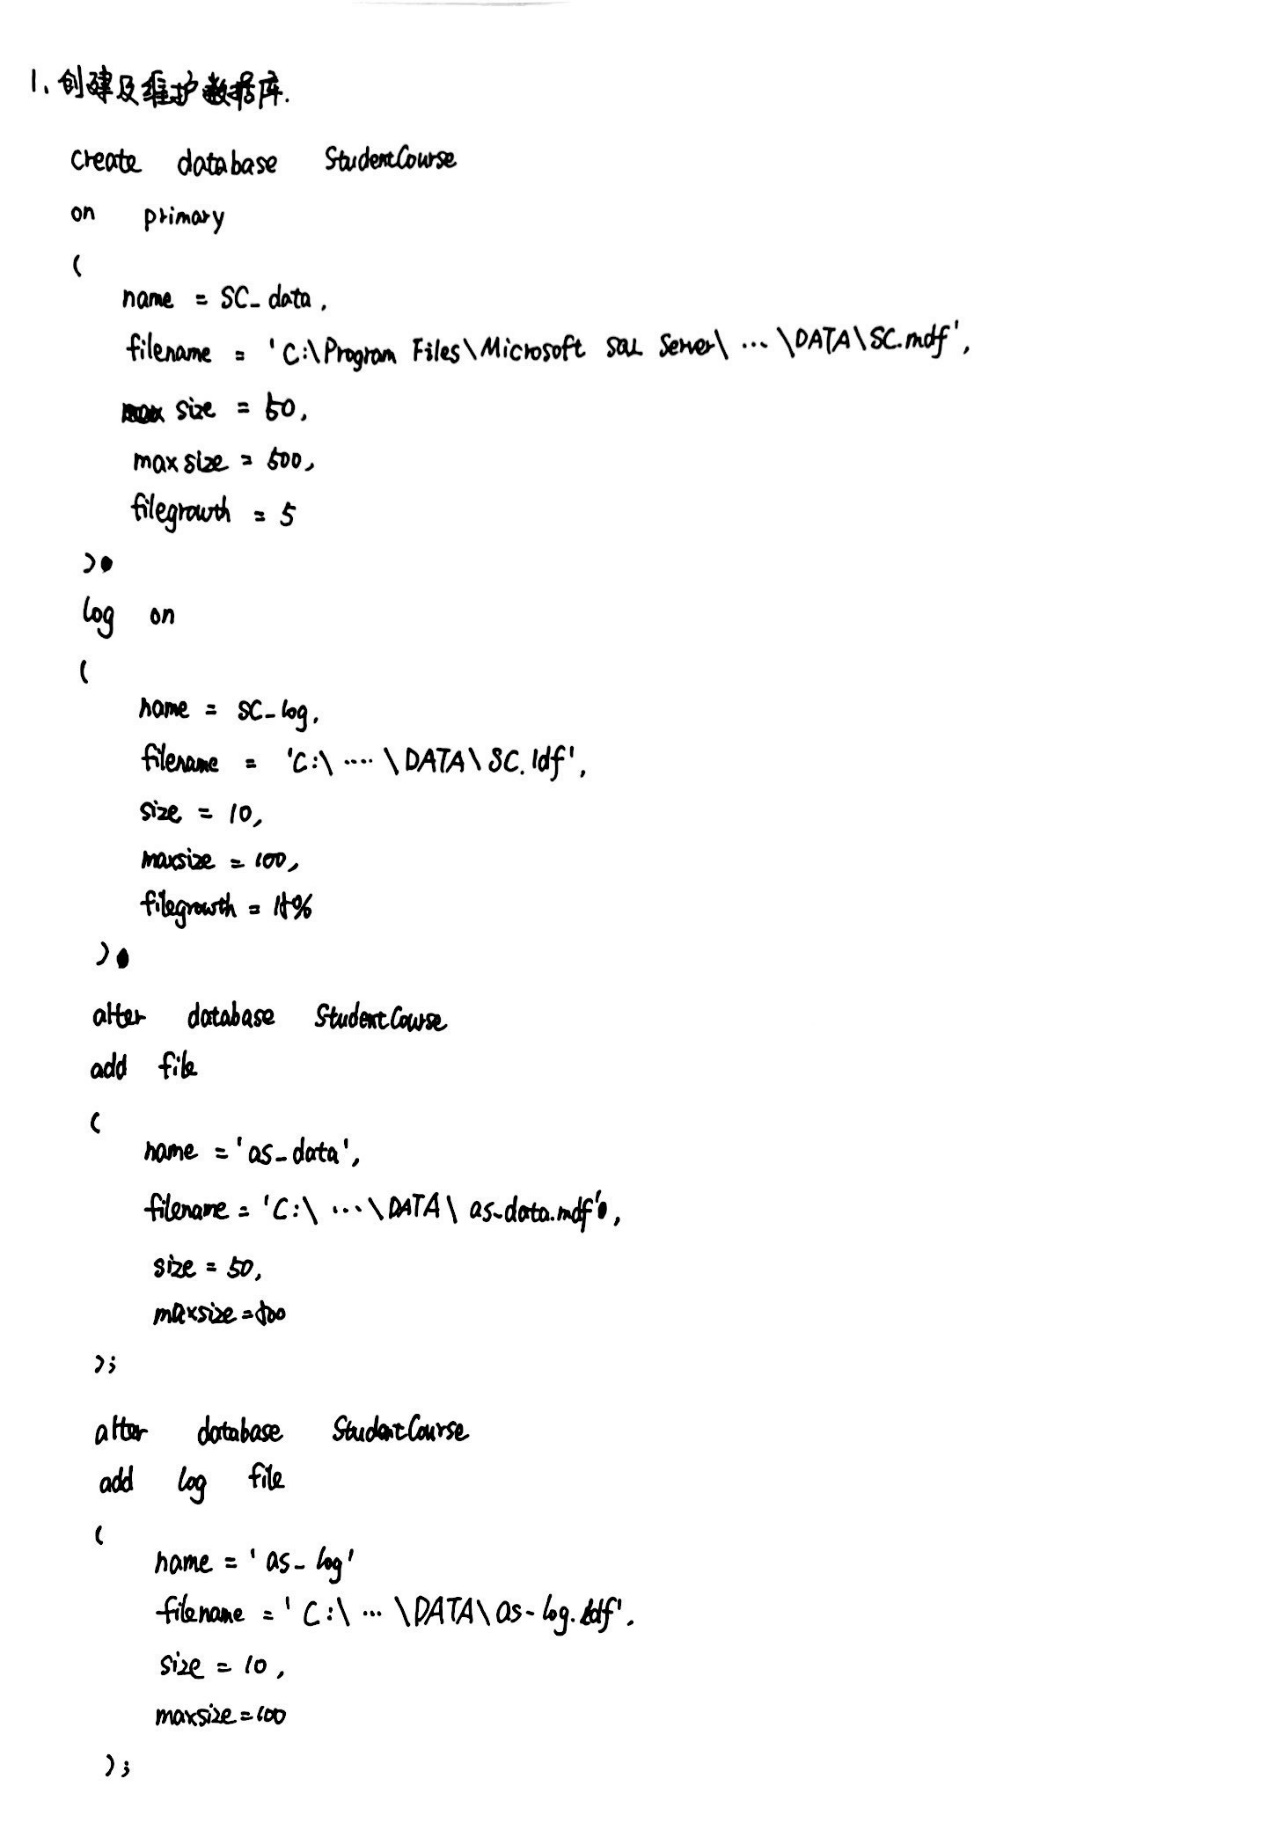 1、创建及维护数据库.
create database StudentCourse
on primary
(
name = SC_data,
filename = 'C:\Program Files\Microsoft SQL Server\ ... \DATA\SC.mdf',
size = 50,
maxsize = 500,
filegrowth = 5
)
log on
(
name = SC_log,
filename = 'C:\ .... \DATA\SC.ldf',
size = 10,
maxsize = 100,
filegrowth =
)
alter database StudentCourse
add file
(
name = 'as_data',
filename = 'C:\ ... \DATA\ as_data.mdf',
size = 50,
maxsize = 500
);
alter database StudentCourse
add log file
(
name = 'as_log'
filename = 'C:\ ... \DATA\as-log.ldf',
size = 10,
maxsize = 100
);